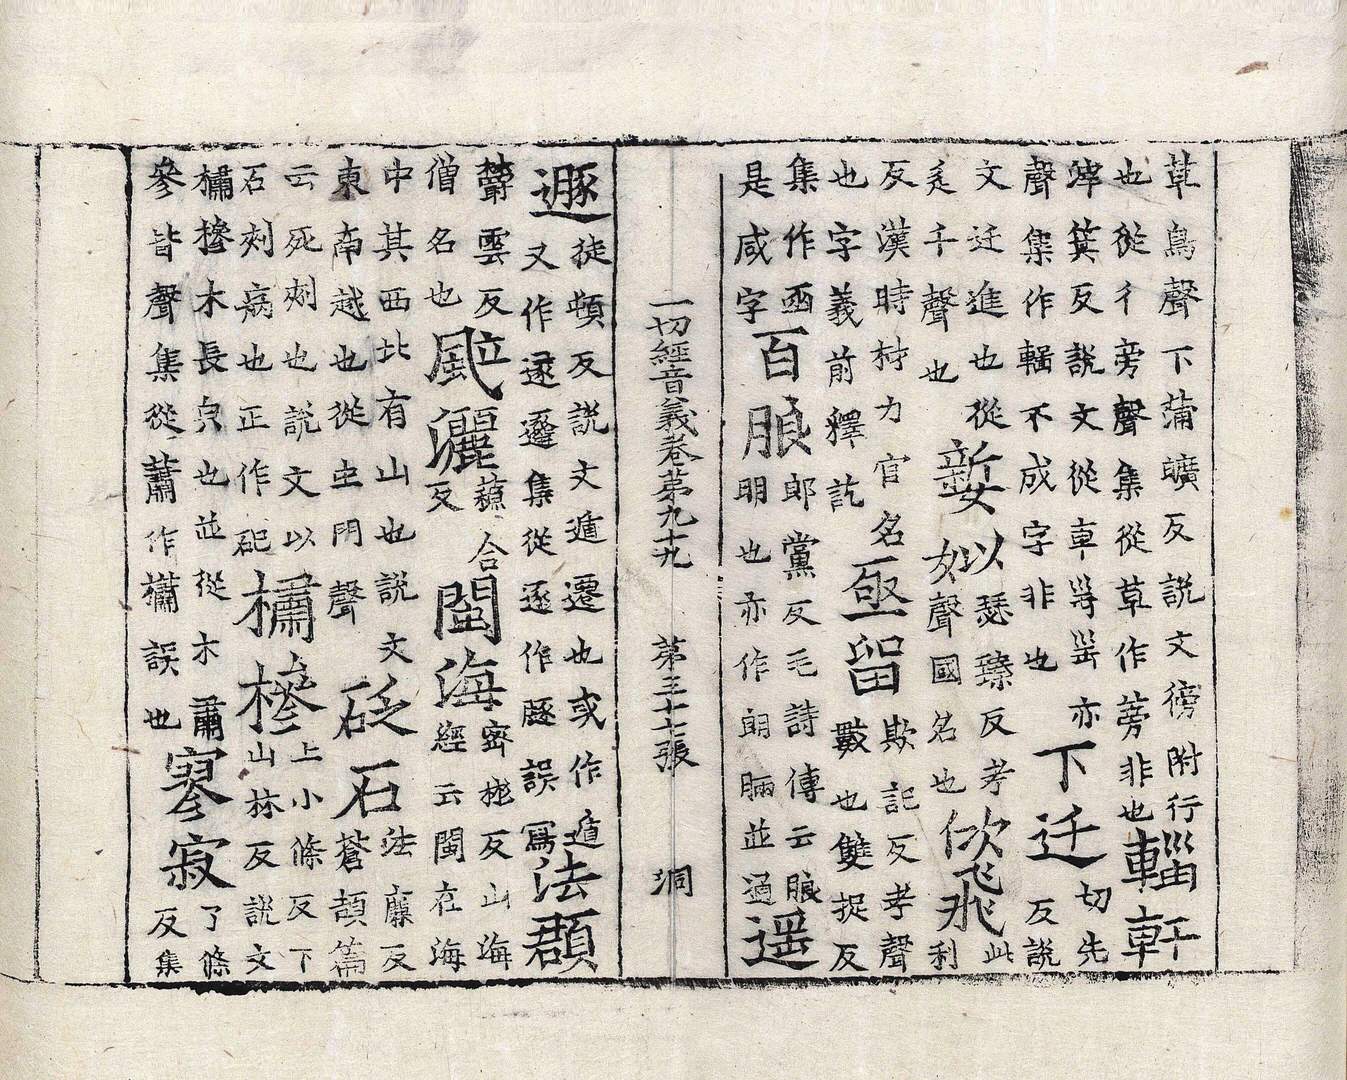 草鳥聲下蒲曠反說文徬附行
也從彳旁聲集從草作蒡非也
輜軒
滓箕反說文從車甾甾亦
聲集作輺不成字非也
下迁
切先
反說
文迁進也從
辵千聲也
㜪
以瑟臻反考
女聲國名也
佽飛
此
利
反漢時材力官名
也字義前釋訖
亟留
欺記反考聲
數也雙捉反
集作凾
是咸字
百朖
郎黨反毛詩傳云朖
明也亦作朗並通
遥
一切經音義卷第九十九 第三十七張 洞
遯
徒頓反說文遁遷也或作遁
又作遂遯集從逐作豚誤寫
法頵
欝雲反
僧名也
颯灑
蘓合
反
閩海
密彬反山海
經云閩在海
中其西北有山也說文
東南越也從虫門聲
砭石
法廉反
蒼頡篇
云死刾也說文以
石刾病也正作砭
橚槮
上小條反下
山林反說文
橚槮木長皃也並從木肅
參皆聲集從蕭作櫹誤也
寥寂
了條
反集